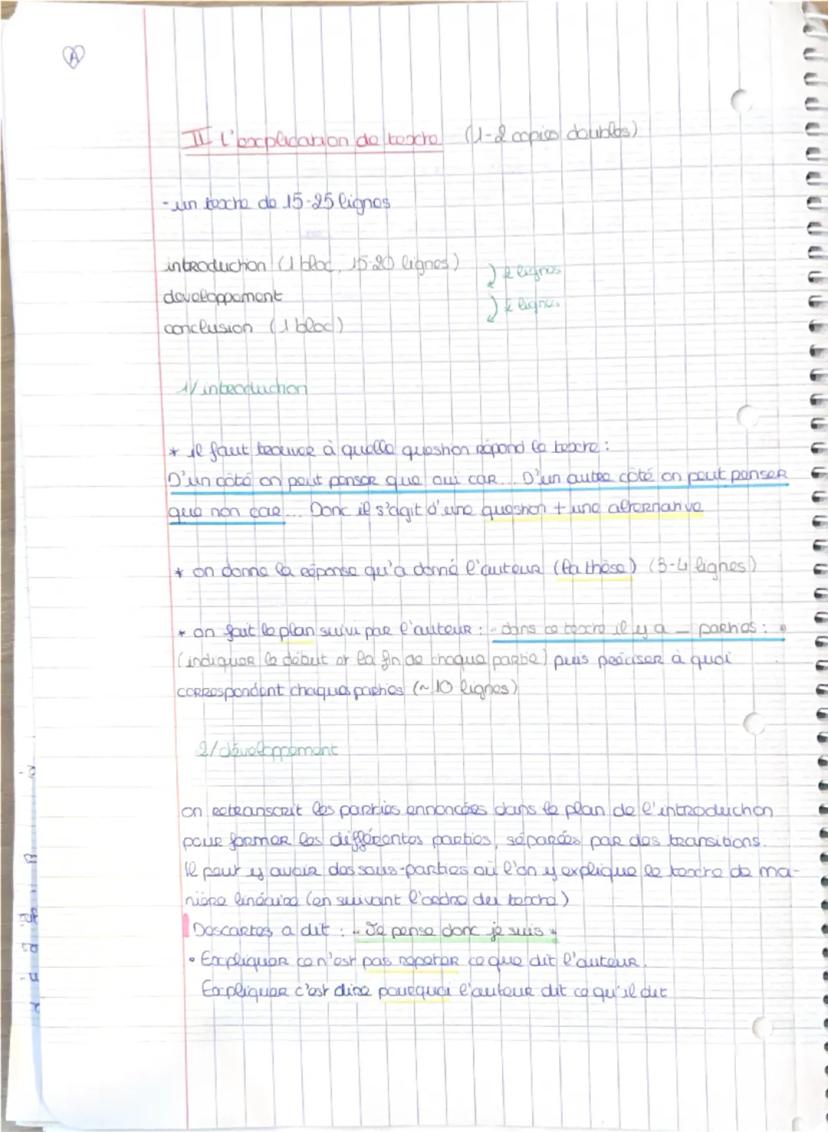 A
II L'explication de texte (1-2 copies doubles)
- un texte de 15-25 lignes
introduction (1 bloc, 15-20 lignes) ) 2 lignes
developpement ) 2 lignes
conclusion (1 bloc)
1/ introduction
* il faut trouver à quelle question répond le texte :
D'un côté on peut penser que oui car... D'un autre côté on peut penser
que non car... Donc il s'agit d'une question + une alternative
* on donne la réponse qu'a donné l'auteur (la thèse) (3-4 lignes)
* on fait le plan suivi par l'auteur : "dans ce texte il y a _ parties : "
(indiquer le début et la fin de chaque partie) puis préciser à quoi
correspondent chaque parties (~10 lignes)
2/ développement
on retranscrit les parties annoncées dans le plan de l'introduction
pour former les différentes parties, séparées par des transitions.
Il peut y avoir des sous-parties où l'on y explique le texte de ma-
nière linéaire (en suivant l'ordre du texte)
Descartes a dit : "Je pense donc je suis"
• Expliquer ce n'est pas répéter ce que dit l'auteur.
Expliquer c'est dire pourquoi l'auteur dit ce qu'il dit